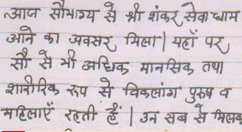 आज सौभाग्य से श्री शंकर सेवा धाम
आने का अवसर मिला। यहाँ पर
सौ से भी अधिक मानसिक तथा
शारीरिक रूप से विकलांग पुरुष व
महिलाएँ रहती हैं। उन सब से मिलकर